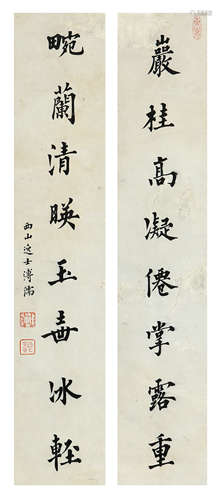 巖桂高凝僊掌露重
畹蘭清暎玉壺冰輕
西山逸士溥儒